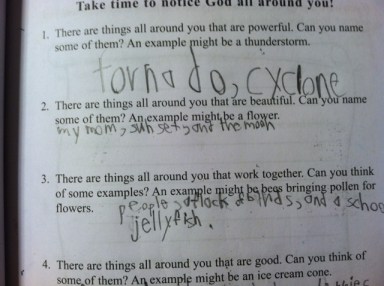 Take time to notice God all around you!
1. There are things all around you that are powerful. Can you name
some of them? An example might be a thunderstorm.
tornado, cyclone
2. There are things all around you that are beautiful. Can you name
some of them? An example might be a flower.
my mom, sun set, and the moon
3. There are things all around you that work together. Can you think
of some examples? An example might be bees bringing pollen for
flowers.
people, a flock of birds, and a schoo
jellyfish.
4. There are things all around you that are good. Can you think of
some of them? An example might be an ice cream cone.